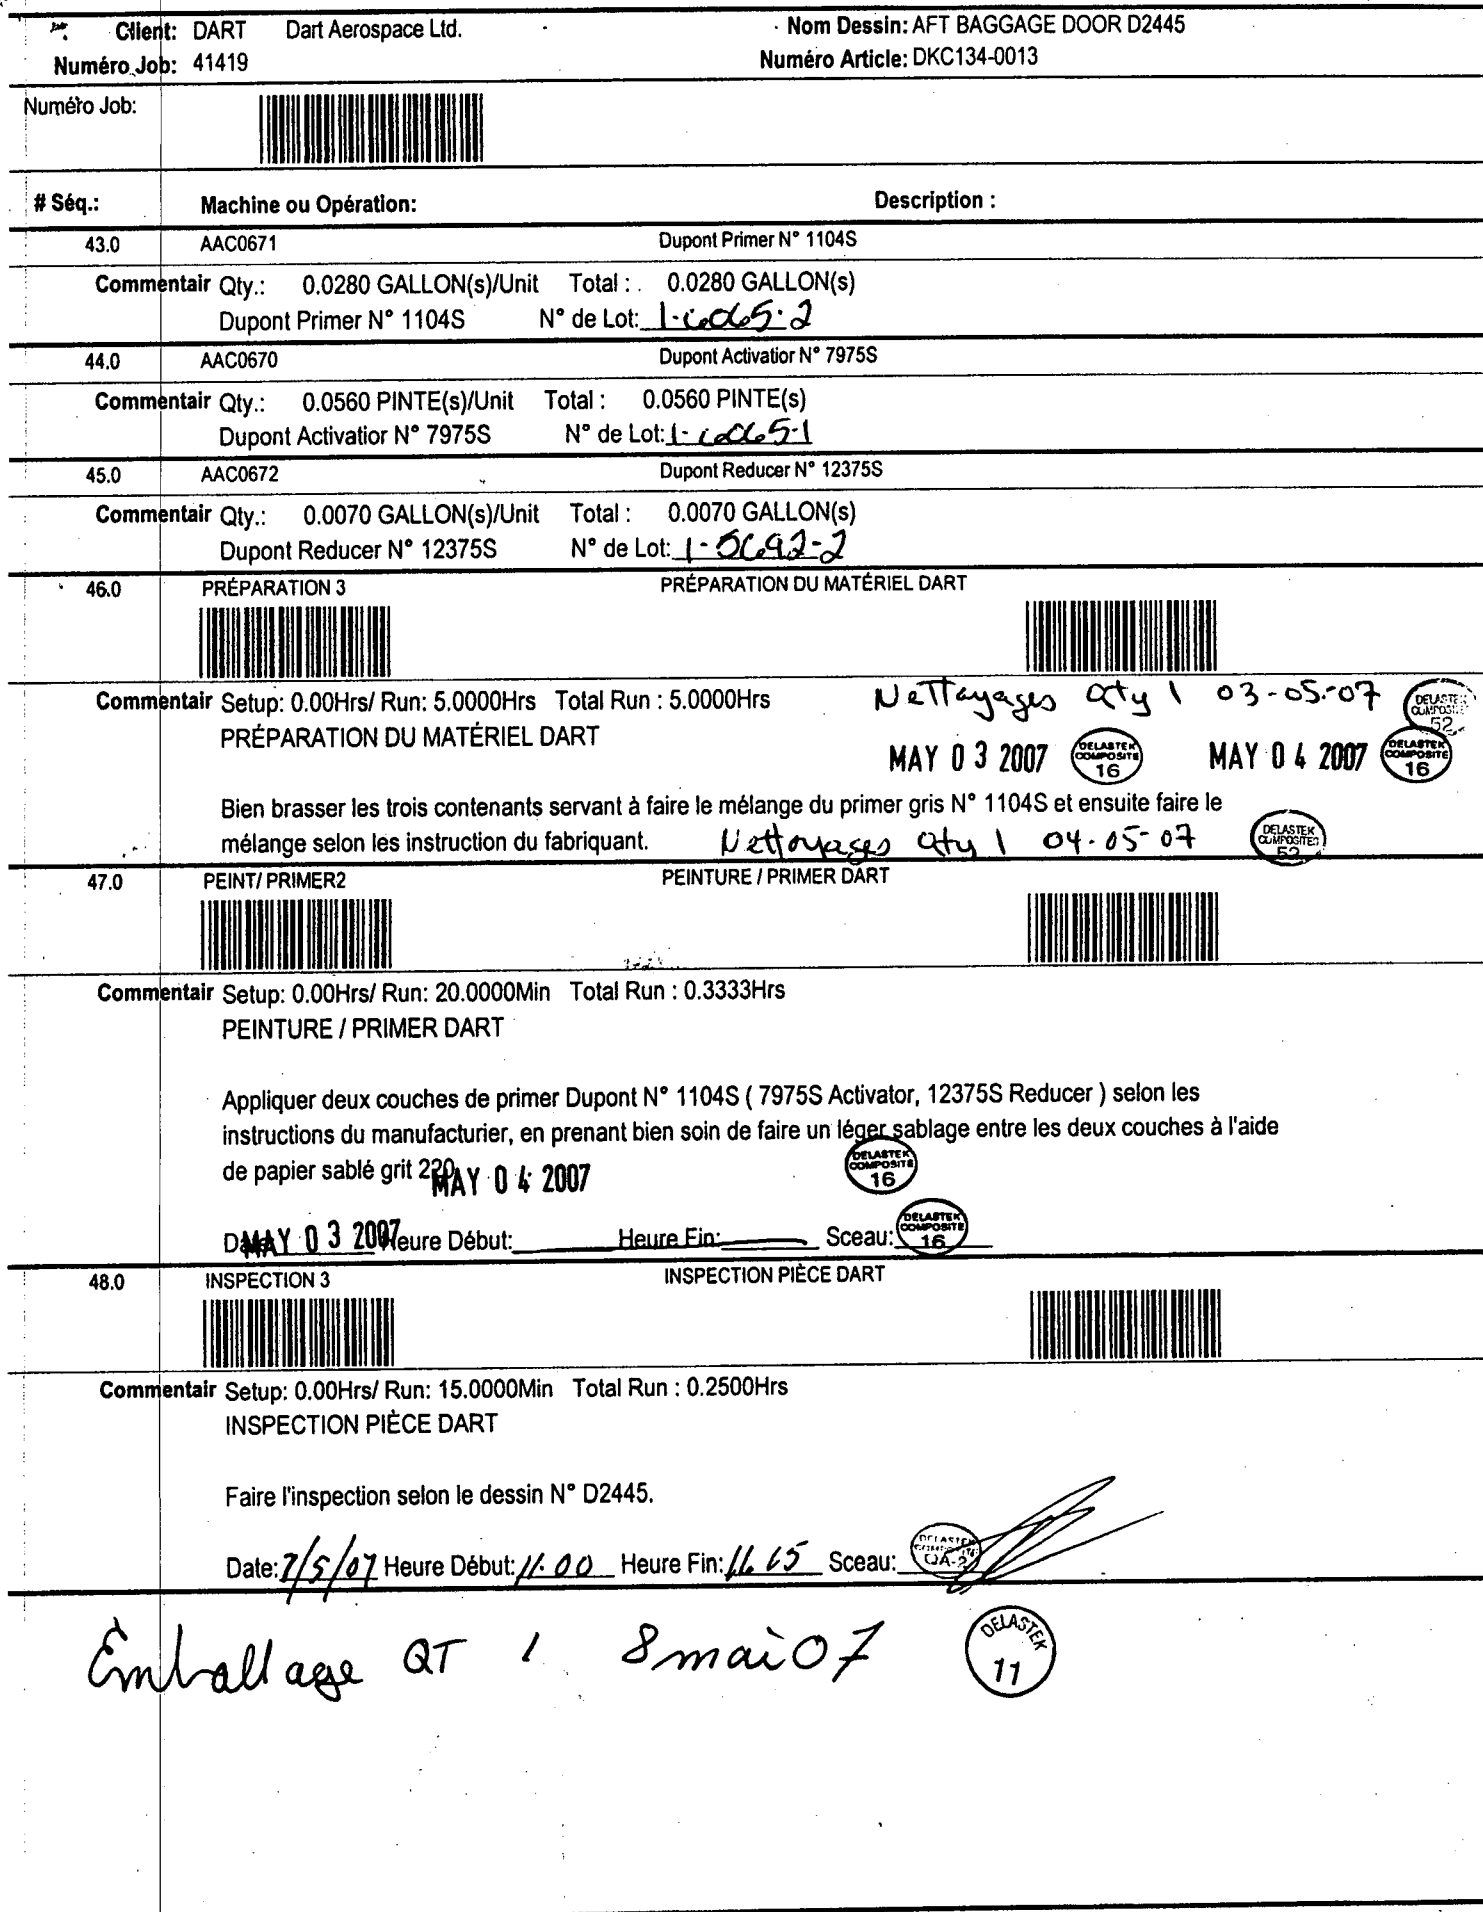 Client: DART Dart Aerospace Ltd. Nom Dessin: AFT BAGGAGE DOOR D2445
Numéro Job: 41419 Numéro Article: DKC134-0013
Numéro Job:
# Séq.: Machine ou Opération: Description :
43.0 AAC0671 Dupont Primer N° 1104S
Commentair Qty.: 0.0280 GALLON(s)/Unit Total : 0.0280 GALLON(s)
Dupont Primer N° 1104S N° de Lot: 1-6065-2
44.0 AAC0670 Dupont Activatior N° 7975S
Commentair Qty.: 0.0560 PINTE(s)/Unit Total : 0.0560 PINTE(s)
Dupont Activatior N° 7975S N° de Lot: 1-6065-1
45.0 AAC0672 Dupont Reducer N° 12375S
Commentair Qty.: 0.0070 GALLON(s)/Unit Total : 0.0070 GALLON(s)
Dupont Reducer N° 12375S N° de Lot: 1-5692-2
46.0 PRÉPARATION 3 PRÉPARATION DU MATÉRIEL DART
Commentair Setup: 0.00Hrs/ Run: 5.0000Hrs Total Run : 5.0000Hrs Nettayages Qty 1 03-05-07 DELASTEK COMPOSITE 52
PRÉPARATION DU MATÉRIEL DART MAY 03 2007 DELASTEK COMPOSITE 16 MAY 04 2007 DELASTEK COMPOSITE 16
Bien brasser les trois contenants servant à faire le mélange du primer gris N° 1104S et ensuite faire le
mélange selon les instruction du fabriquant. Nettoyages Qty 1 04-05-07 DELASTEK COMPOSITES 52
47.0 PEINT/ PRIMER2 PEINTURE / PRIMER DART
Commentair Setup: 0.00Hrs/ Run: 20.0000Min Total Run : 0.3333Hrs
PEINTURE / PRIMER DART
Appliquer deux couches de primer Dupont N° 1104S ( 7975S Activator, 12375S Reducer ) selon les
instructions du manufacturier, en prenant bien soin de faire un léger sablage entre les deux couches à l'aide
de papier sablé grit 220 MAY 04 2007 DELASTEK COMPOSITE 16
MAY 03 2007 Heure Début: Heure Fin: Sceau: DELASTEK COMPOSITE 16
48.0 INSPECTION 3 INSPECTION PIÈCE DART
Commentair Setup: 0.00Hrs/ Run: 15.0000Min Total Run : 0.2500Hrs
INSPECTION PIÈCE DART
Faire l'inspection selon le dessin N° D2445.
Date: 7/5/07 Heure Début: 11.00 Heure Fin: Sceau: DELASTEK QA-2
Emballage QT 1 8 mai 07 DELASTEK 11